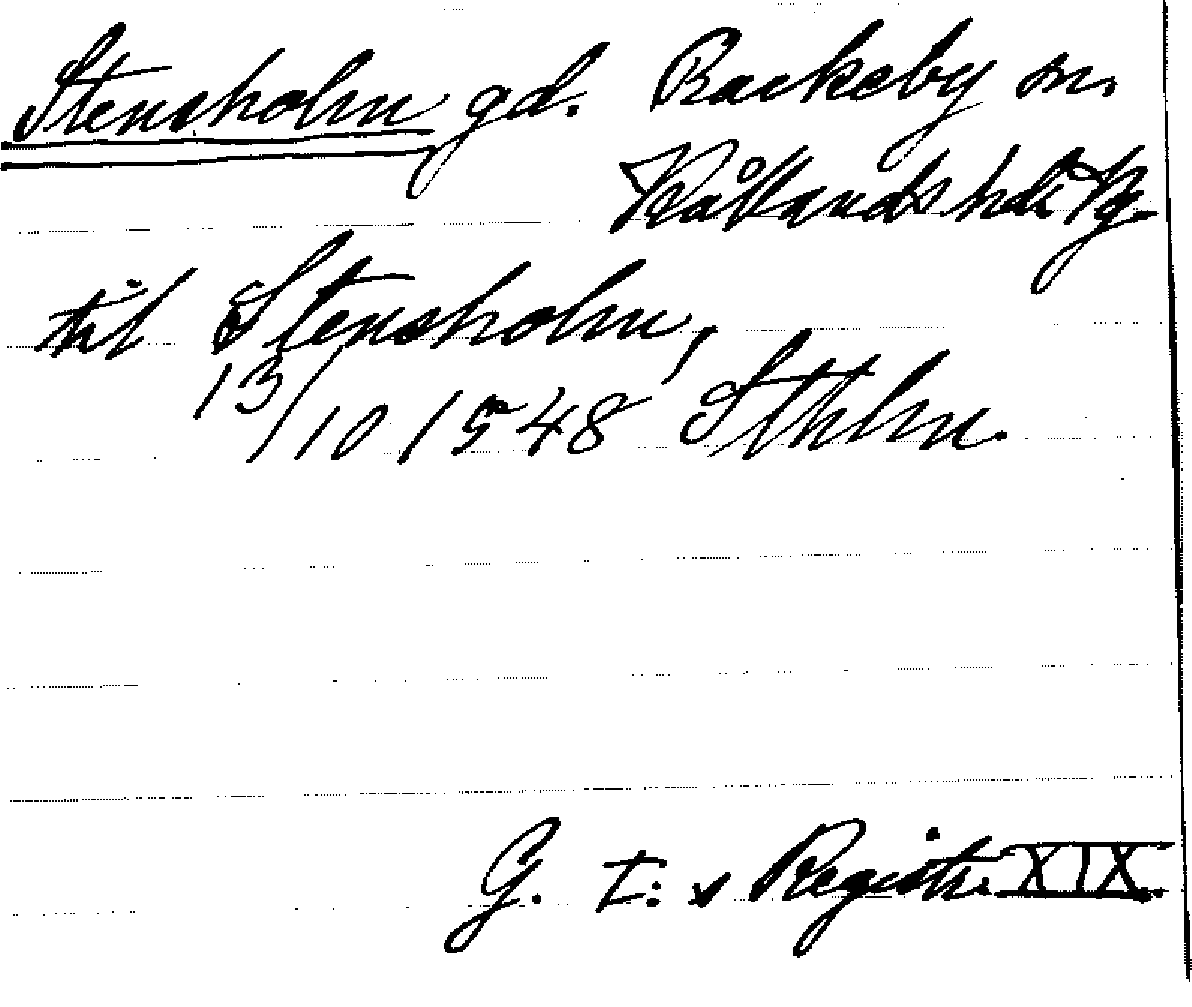 Stensholm gd. Rackeby sn.
Kållands hd.
til Stensholm,
13/10 1548 Sthlm.
G. I:s Registr. XIX.